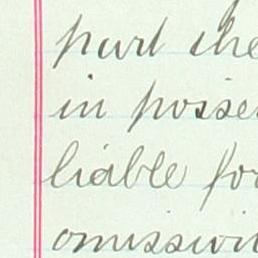 part the
in posse
liable for
omission